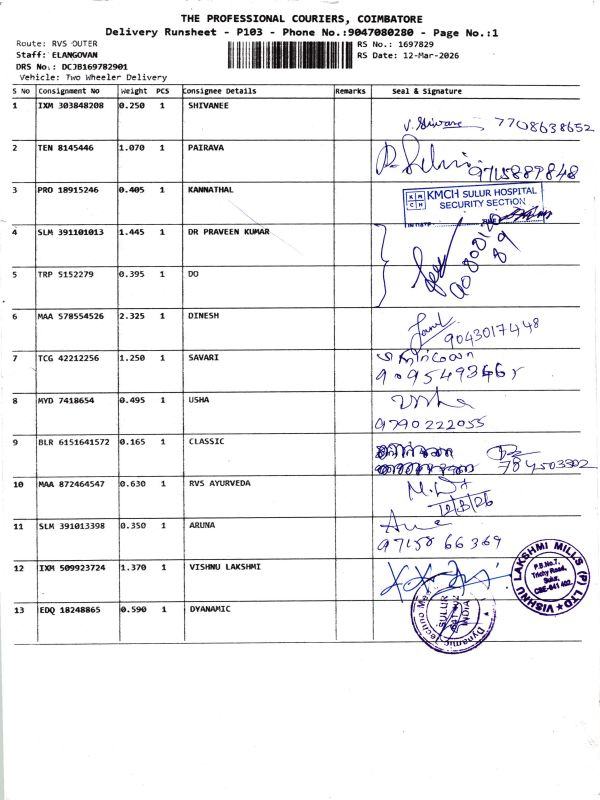 THE PROFESSIONAL COURIERS, COIMBATORE
Delivery Runsheet - P103 - Phone No.:9047080280 - Page No.:1
Route: RVS OUTER RS No.: 1697829
Staff: ELANGOVAN RS Date: 12-Mar-2026
DRS No.: DCJB169782901
Vehicle: Two Wheeler Delivery
S No Consignment No Weight PCS Consignee Details Remarks Seal & Signature
1 IXM 303848208 0.250 1 SHIVANEE
7708638652
2 TEN 8145446 1.070 1 PAIRAVA
9715889848
3 PRO 18915246 0.405 1 KANNATHAL
KMCH SULUR HOSPITAL
SECURITY SECTION
4 SLM 391101013 1.445 1 DR PRAVEEN KUMAR
5 TRP 5152279 0.395 1 DO
6 MAA 578554526 2.325 1 DINESH
9043017448
7 TCG 42212256 1.250 1 SAVARI
8 MYD 7418654 0.495 1 USHA
9790222055
9 BLR 6151641572 0.165 1 CLASSIC
10 MAA 872464547 0.630 1 RVS AYURVEDA
12/3/26
11 SLM 391013398 0.350 1 ARUNA
97158 66369
12 IXM 509923724 1.370 1 VISHNU LAKSHMI
VISHNU LAKSHMI MILLS (P) LTD
P.B.No.7,
Trichy Road,
Sulur,
CBE-641 402.
13 EDQ 18248865 0.590 1 DYANAMIC
SULUR
INDIA